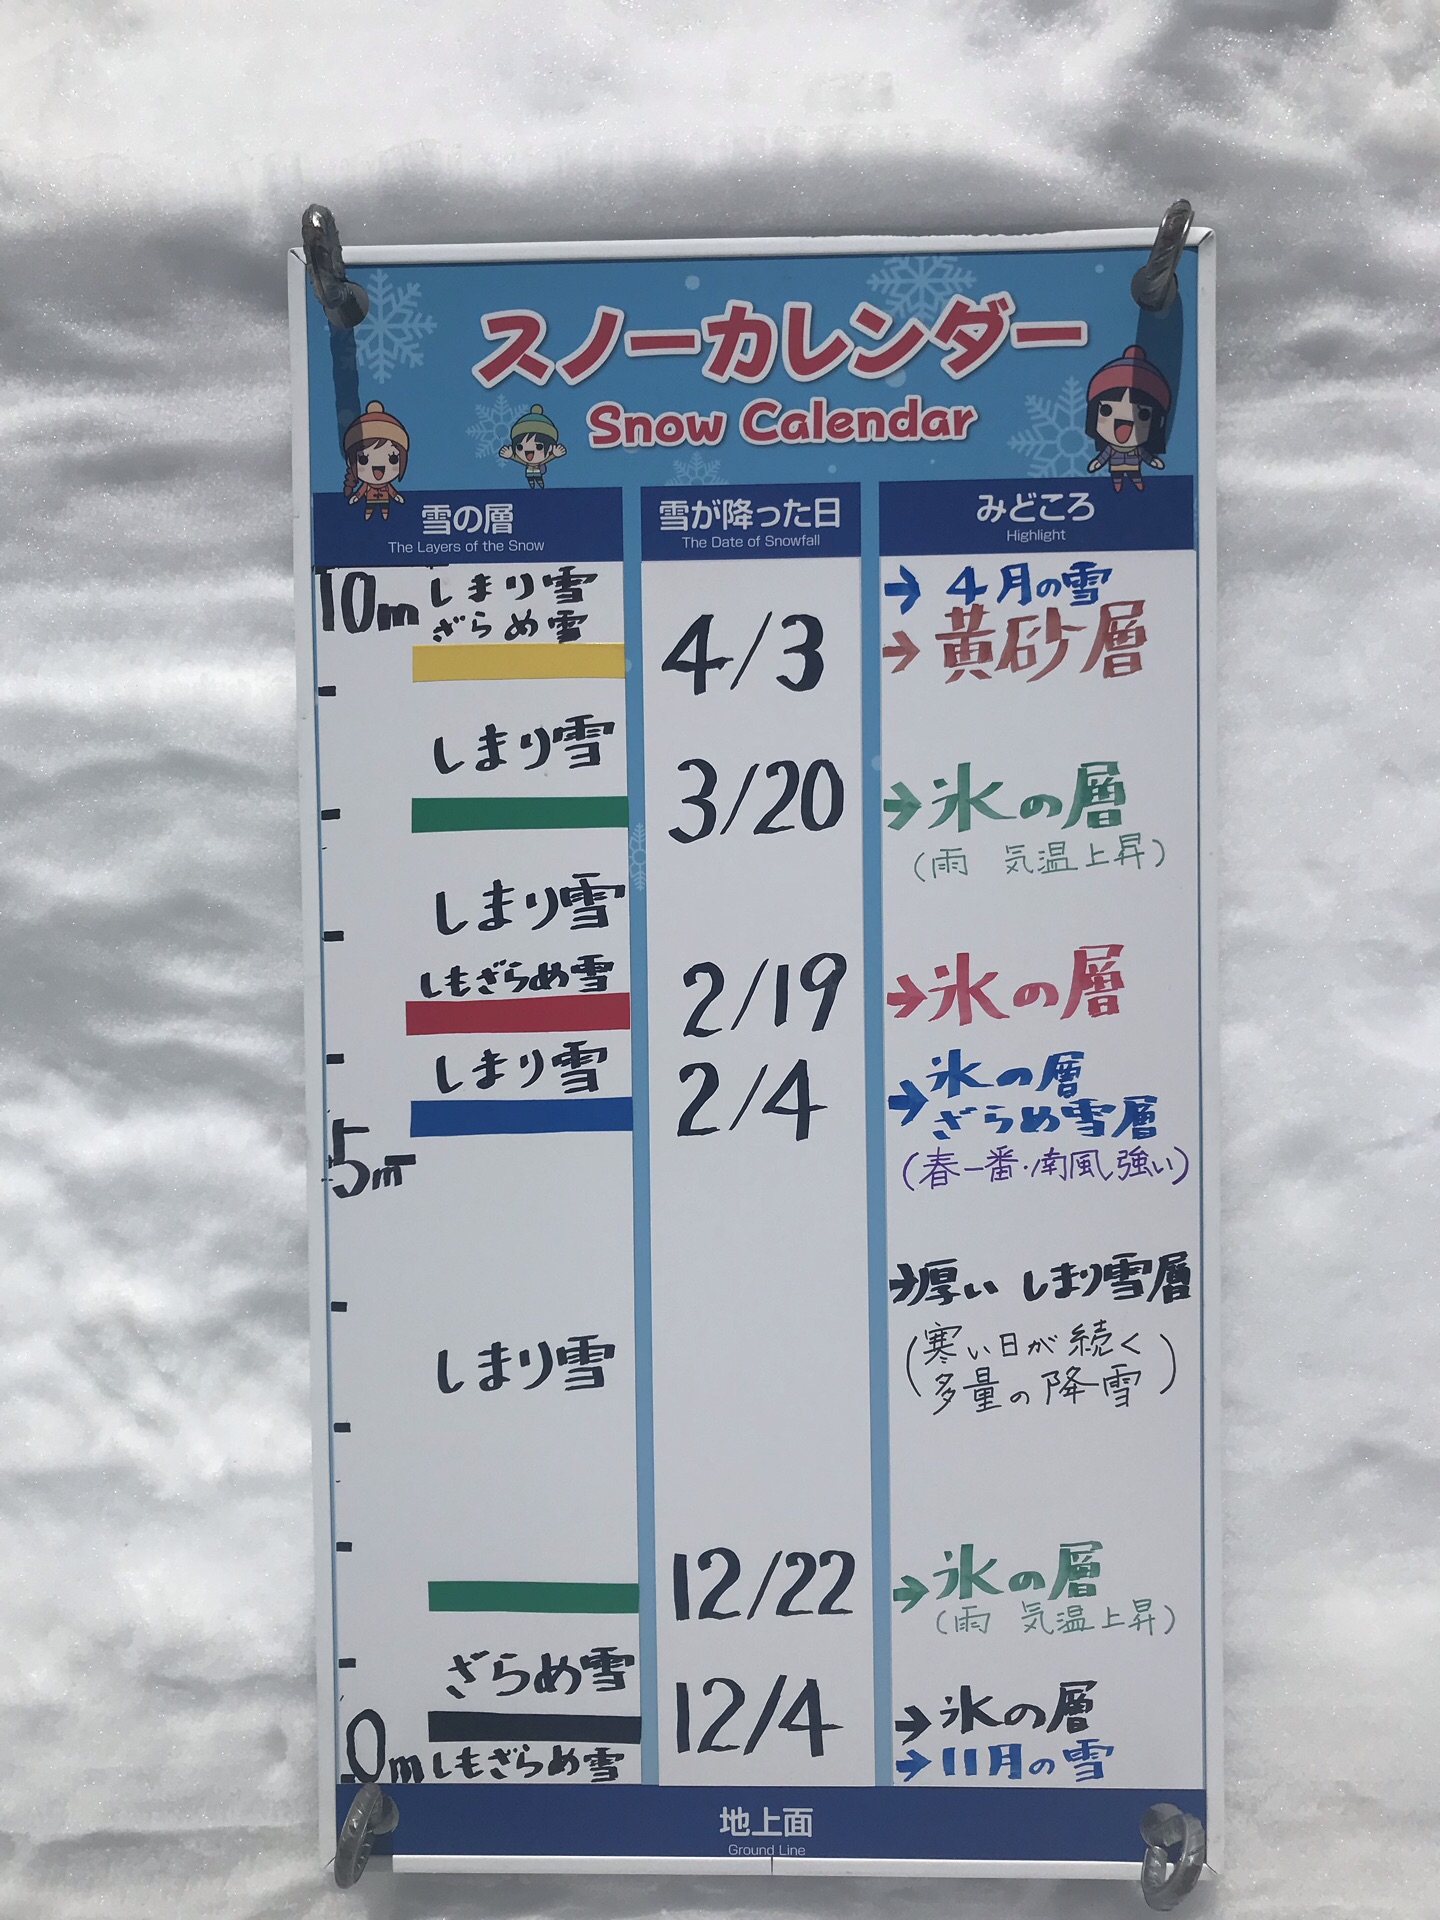 スノーカレンダー
Snow Calendar
雪の層
The Layers of the Snow
雪が降った日
The Date of Snowfall
みどころ
Highlight
10m
しまり雪
ざらめ雪
4/3
→ 4月の雪
→ 黄砂層
しまり雪
3/20
→ 氷の層
(雨 気温上昇)
しまり雪
しもざらめ雪
2/19
→ 氷の層
しまり雪
2/4
→ 氷の層
ざらめ雪層
(春一番・南風強い)
5m
→厚い しまり雪層
(寒い日が続く
多量の降雪)
しまり雪
12/22
→ 氷の層
(雨 気温上昇)
ざらめ雪
12/4
→ 氷の層
0m
しもざらめ雪
→ 11月の雪
地上面
Ground Line